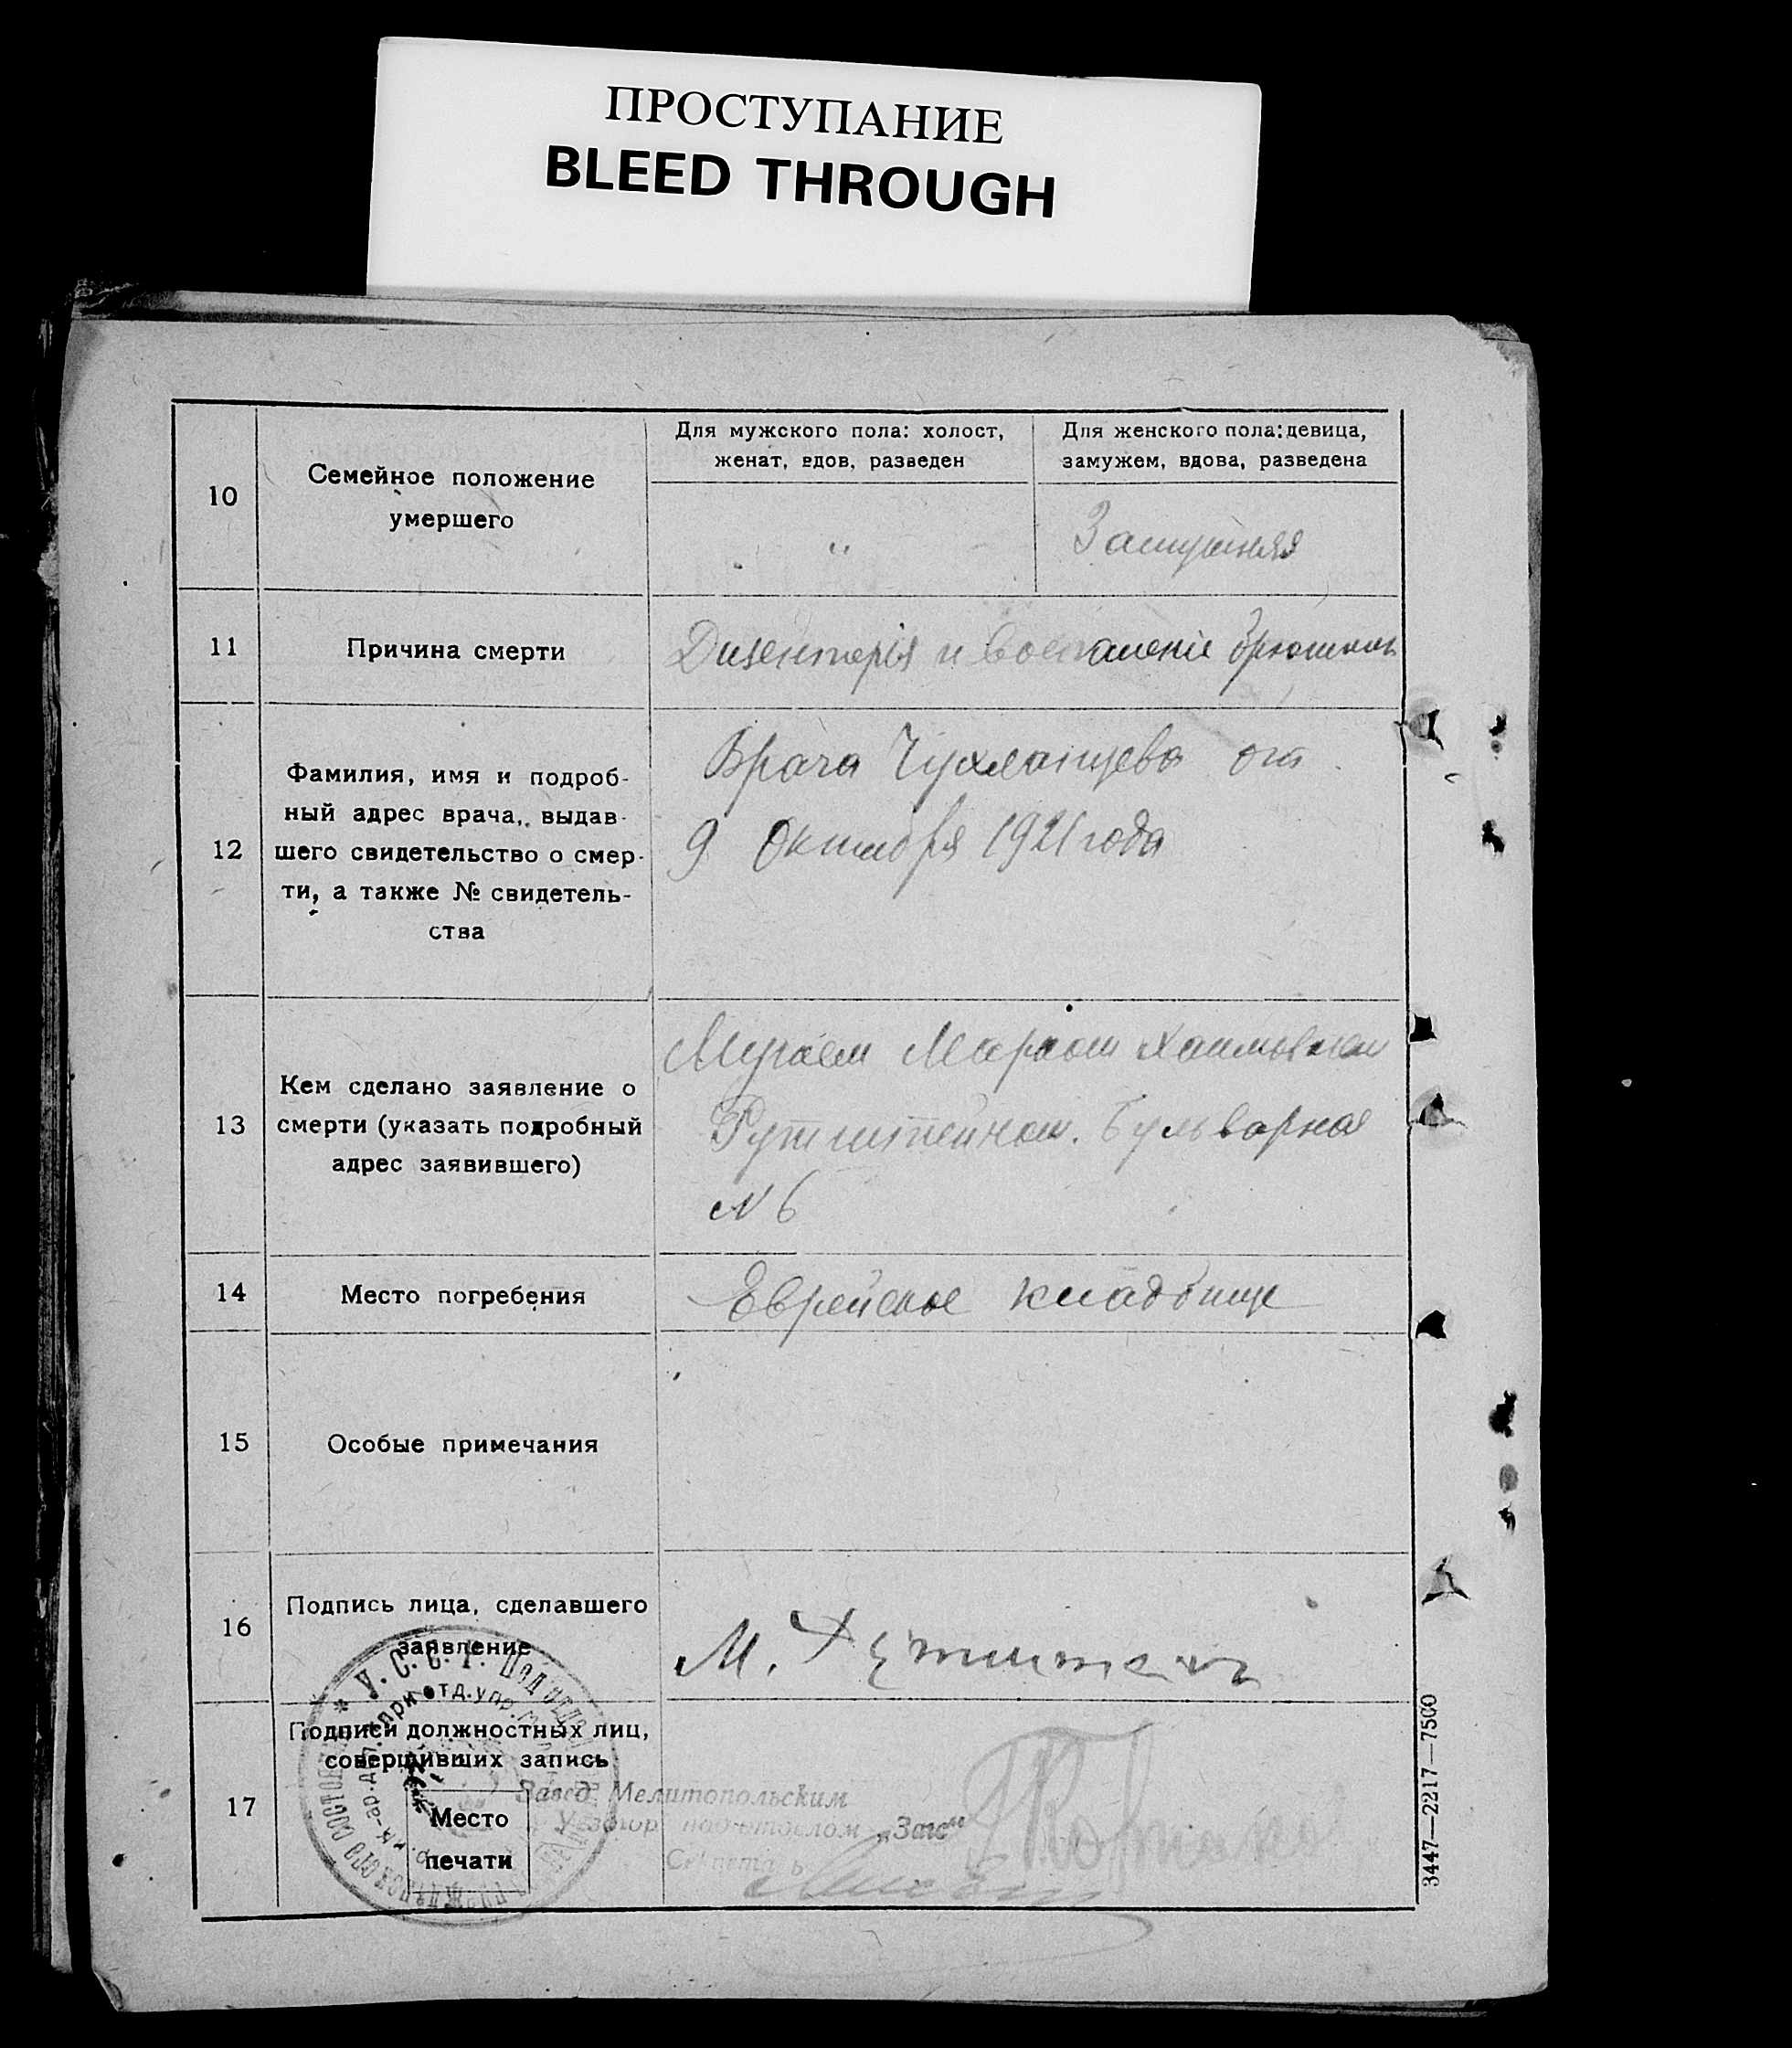 ПРОСТУПАНИЕ
BLEED THROUGH
10
Семейное положение
умершего
Для мужского пола: холост,
женат, вдов, разведен
"
Для женского пола: девица,
замужем, вдова, разведена
Замужняя
11
Причина смерти
Дизентерія и воспаленіе брюшины
12
Фамилия, имя и подроб-
ный адрес врача, выдав-
шего свидетельство о смер-
ти, а также № свидетель-
ства
Врача Чухланцева от
9 Октября 1921 года
13
Кем сделано заявление о
смерти (указать подробный
адрес заявившего)
Мужем Хаимовичем
Бульварная
№ 6
14
Место погребения
Еврейское кладбище
15
Особые примечания
16
Подпись лица, сделавшего
заявление
М.
17
Подписи должностных лиц,
совершивших запись
Место
печати
У. С. С. Р.
при отд. упр.
Завед. Мелитопольским
подотделом „Загс"
3447—2217—7500